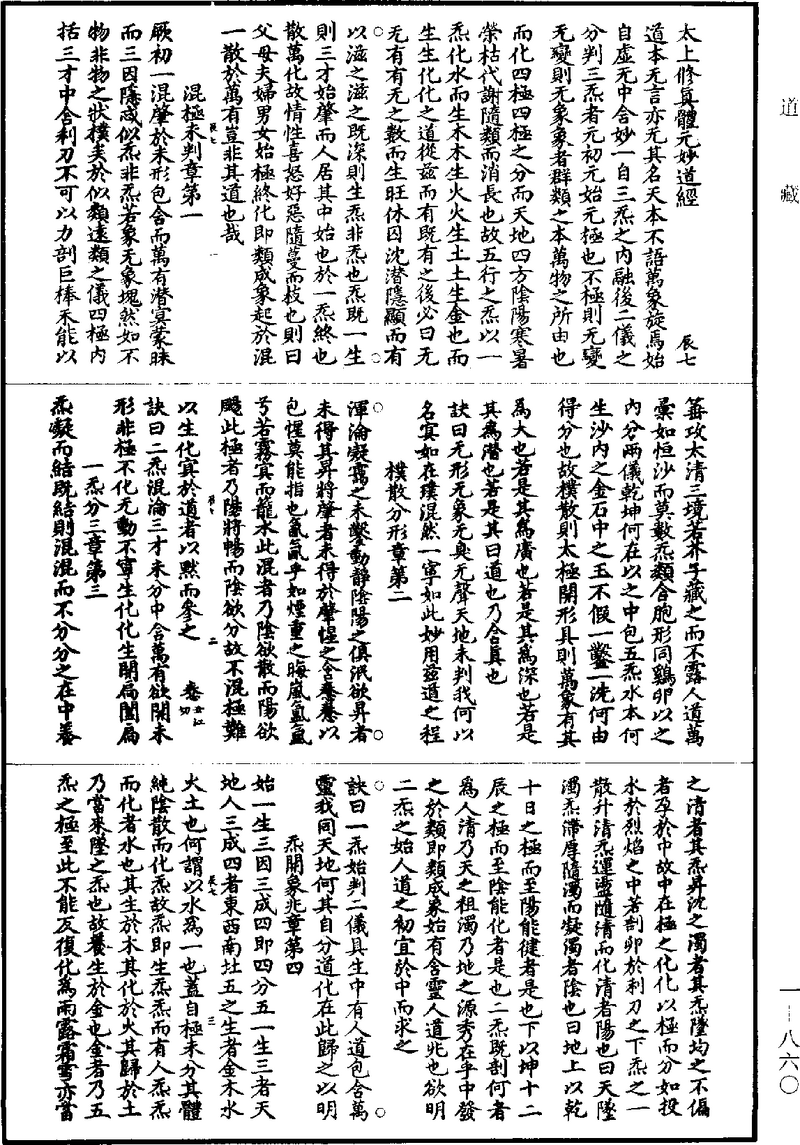 道藏
太上修眞體元妙道經
辰七
道本无言亦无其名天本不語萬象旋焉始
自虛无中含妙一自三炁之內融後二儀之
分判三炁者元初元始元極也不極則无變
无變則无象象者群類之本萬物之所由也
而化四極四極之分而天地四方陰陽寒暑
榮枯代謝隨類而消長也故五行之炁以一
炁化水而生木木生火火生土土生金也而
生生化化之道從茲而有既有之後必曰无
无有有无之數而生旺休囚沈潜隱顯而有
以滋之滋之既深則生炁非炁也炁既一生
則三才始肇而人居其中始也於一炁終也
散萬化故情性喜怒好惡隨蔓而枝也則曰
父母夫婦男女始極終化即類成象起於混
一散於萬有豈非其道也哉
混極未判章第一
辰七
一
厥初一混肇於未形包含而萬有潜寞蒙昧
而三因隱惑似炁非炁若象无象塊然如不
物非物之狀樸美於似類遠類之儀四極內
括三才中含利刀不可以力剖巨棒未能以
篝攻太清三境若芥子藏之而不露人道萬
彙如恒沙而莫數炁類含胞形同鷄卵以之
內分兩儀乾坤何在以之中包五炁水本何
生沙內之金石中之玉不假一鑿一洗何由
得分也故樸散則太極開形具則萬象有其
爲大也若是其爲廣也若是其爲深也若是
其爲潜也若是其曰道也乃合眞也
訣曰无形无象无臭无聲天地未判我何以
名寞如在璞混然一寧如此妙用茲道之程
樸散分形章第二
渾淪凝靄之未鑿動靜陰陽之俱泯欲昇者
未得其昇將肇者未得於肇惺之含
以
包惺莫能指也氤氤乎如煙重之晦嵐氳氳
兮若霧寞而籠水此混者乃陰欲散而陽欲
颺此極者乃陽將暢而陰欲分故不混極難
以生化寞於道者以默而參之
辰七
二
養
訣曰二炁混淪三才未分中含萬有欲開未
形非極不化无動不寧生化化生開扃闔扃
一炁分三章第三
炁凝而結既結則混混而不分分之在中養
之清者其炁昇沈之濁者其炁墜均之不偏
者孕於中故中在極之化化以極而分如投
水於烈焰之中若剖卵於利刀之下炁之一
散升清炁運盪隨清而化清者陽也曰天墜
濁炁滯厚隨濁而凝濁者陰也曰地上以乾
十日之極而至陽能健者是也下以坤十二
辰之極而至陰能化者是也二炁既剖何者
爲人清乃天之祖濁乃地之源秀在乎中發
之於類即類成象始有含靈人道兆也欲明
二炁之始人道之初宜於中而求之
訣曰一炁始判二儀具生中有人道包含萬
靈我同天地何其自分道化在此歸之以明
炁開象兆章第四
始一生三因三成四即四分五一生三者天
地人三成四者東西南北五之生者金木水
火土也何謂以水爲一也蓋自極未分其體
辰七
三
純陰散而化炁故炁即生炁炁而有人炁炁
而化者水也其生於木其化於火其歸於土
乃當來墜之炁也故養生於金也金者乃五
炁之極至此不能反復化爲雨露霜雪亦當
一--八六〇